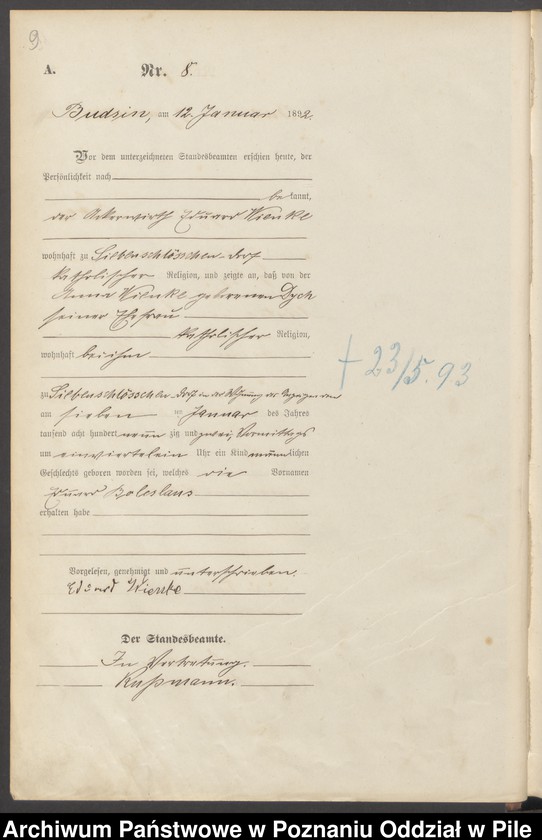 9.
A. Nr. 8.
Budsin, am 12. Januar 1892.
Vor dem unterzeichneten Standesbeamten erschien heute, der
Persönlichkeit nach
bekannt,
der Ackerwirth Eduard Wienke
wohnhaft zu Siebenschlösschen Dorf
katholischer Religion, und zeigte an, daß von der
Anna Wienke geborenen Dych
seiner Ehefrau
katholischer Religion,
wohnhaft bei ihm
zu Siebenschlösschen Dorf in der Wohnung des Anzeigenden
am sieben ten Januar des Jahres
tausend acht hundert neun zig und zwei, Vormittags
um einviertelein Uhr ein Kind männlichen
Geschlechts geboren worden sei, welches die Vornamen
Eduard Boleslaus
erhalten habe
† 23/5. 93
Vorgelesen, genehmigt und unterschrieben.
Eduard Wienke
Der Standesbeamte.
In Vertretung.
Rußmann.
Archiwum Państwowe w Poznaniu Oddział w Pile